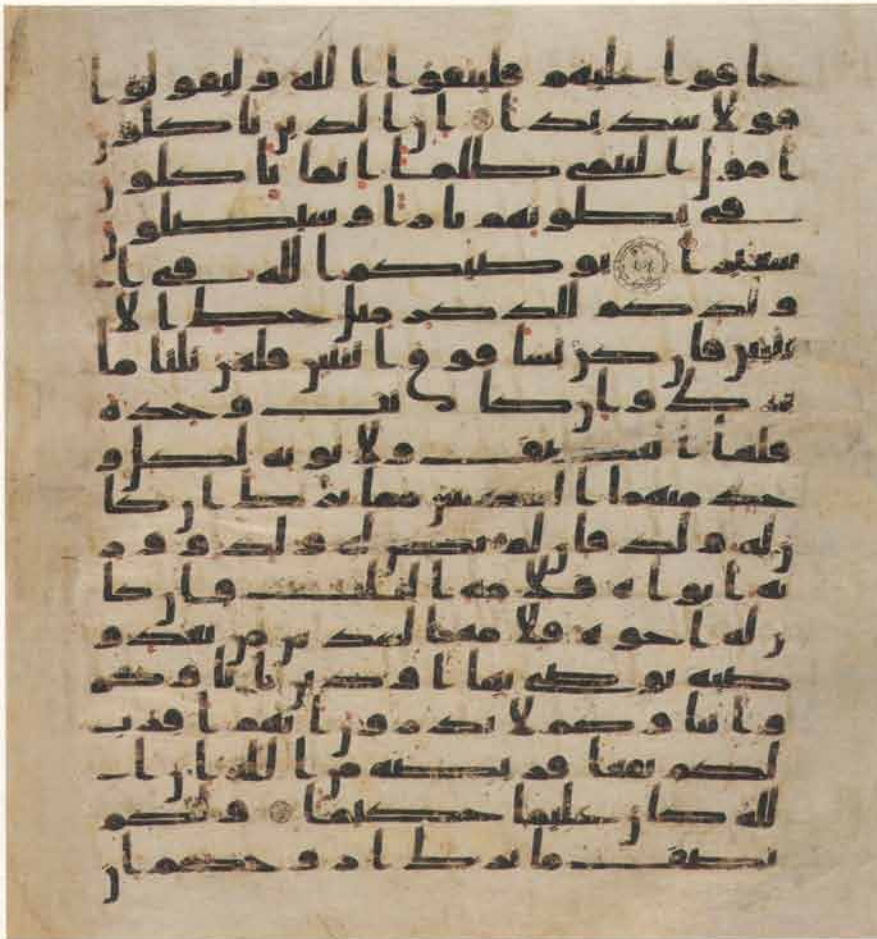 خافوا عليهم فليتقوا الله وليقولوا
قولا سديدا ان الذين ياكلون
امول اليتمى ظلما انما ياكلون
في بطونهم نارا وسيصلون
سعيرا يوصيكم الله في ا
ولدكم للذكر مثل حظ الا
نثيين فان كن نسا فوق اثنتين فلهن ثلثا ما
ترك وان كانت وحده
فلها النصف ولابويه لكل و
حد منهما السدس مما ترك ان كا
ن له ولد فان لم يكن له ولد وور
ثه ابواه فلامه الثلث فان كا
ن له اخوه فلامه السدس من بعد و
صيه يوصي بها او دين اباوكم
وابناوكم لا تدرون ايهم اقرب
لكم نفعا فريضه من الله ان ا
لله كان عليما حكيما ولكم
نصف ما ترك ازوجكم ان